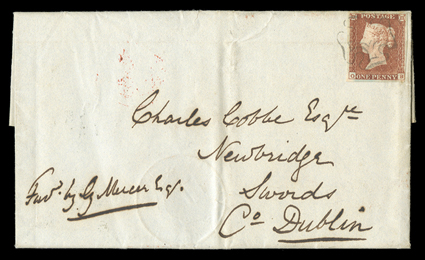 POSTAGE
ONE PENNY
Charles Cobbe Esqre
Newbridge
Swords
Co Dublin
Favd. by G Mercer Esq.